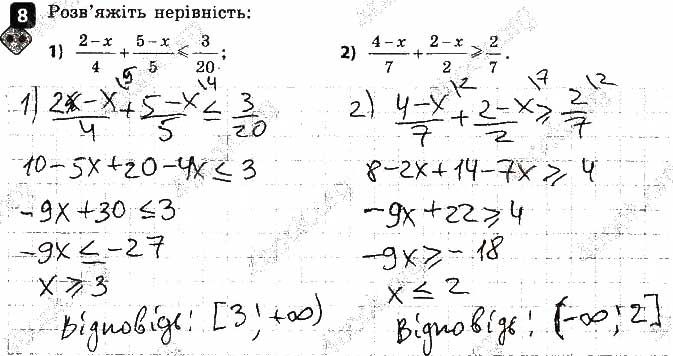 8 Розв'яжіть нерівність:
1) (2−x)/4 + (5−x)/5 ≤ 3/20;
2) (4−x)/7 + (2−x)/2 ≥ 2/7.
1) (2−x)/4 \5 + (5−x)/5 \4 ≤ 3/20
10−5x+20−4x ≤ 3
−9x+30 ≤ 3
−9x ≤ −27
x ≥ 3
Відповідь: [3; +∞)
2) (4−x)/7 \2 + (2−x)/2 \7 ≥ 2/7 \2
8−2x+14−7x ≥ 4
−9x+22 ≥ 4
−9x ≥ −18
x ≤ 2
Відповідь: (−∞; 2]